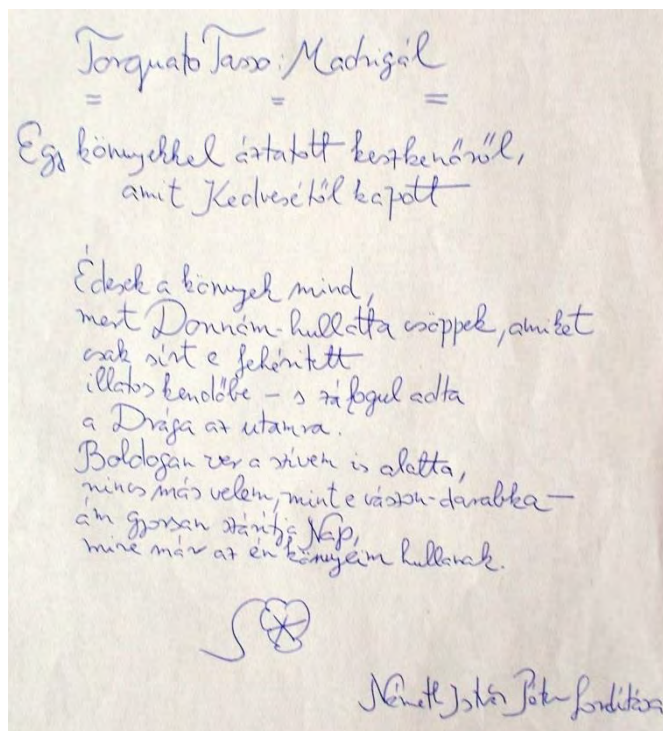 Torquato Tasso: Madrigál
Egy könnyekkel áztatott keszkenőről,
amit Kedvesétől kapott
Édesek a könnyek mind,
mert Donnám-hullatta csöppek, amiket
csak sírt e fehérített
illatos kendőbe – s zálogul adta
a Drága az utamra.
Boldogan ver a szívem is alatta,
nincs más velem, mint e vászon-darabka –
ám gyorsan szárítja Nap,
mire már az én könnyeim hullanak.
Németh István Péter fordítása